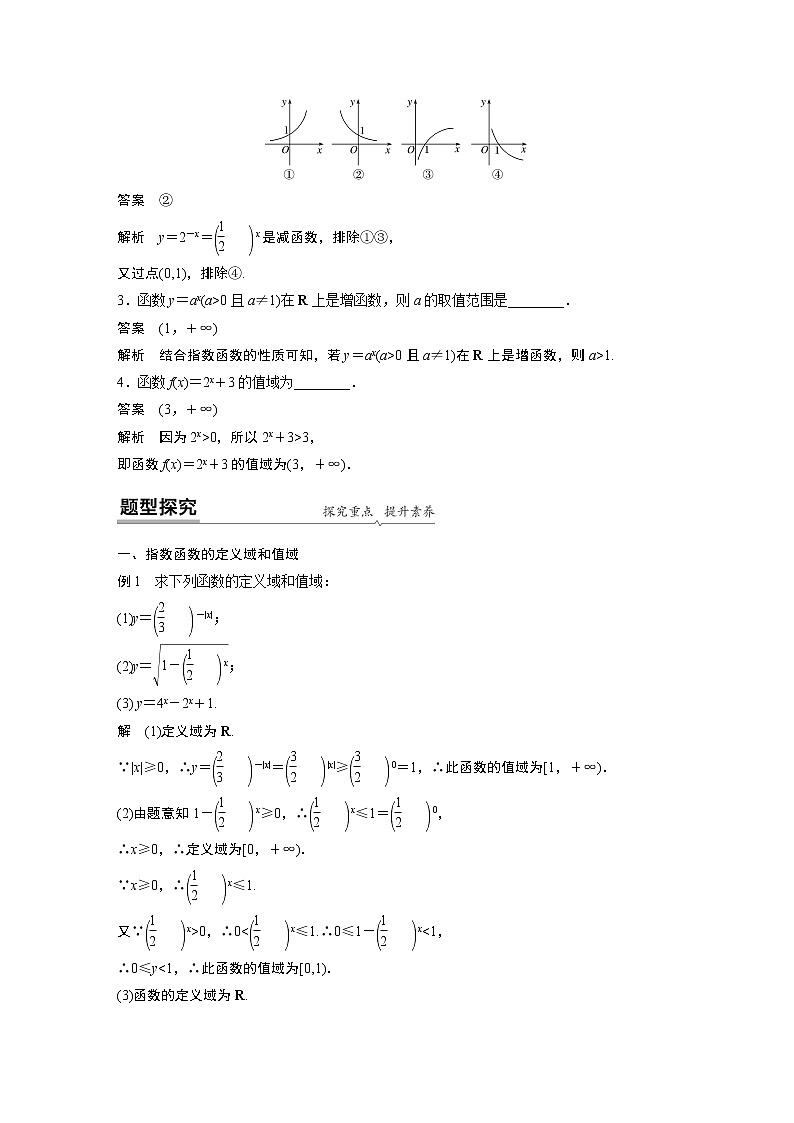 y y y y
1 1
O x O x O 1 x O 1 x
① ② ③ ④
答案　②
解析　y＝2⁻ˣ＝(1/2)ˣ是减函数，排除①③，
又过点(0,1)，排除④.
3．函数y＝aˣ(a>0且a≠1)在R上是增函数，则a的取值范围是________．
答案　(1，＋∞)
解析　结合指数函数的性质可知，若y＝aˣ(a>0且a≠1)在R上是增函数，则a>1.
4．函数f(x)＝2ˣ＋3的值域为________．
答案　(3，＋∞)
解析　因为2ˣ>0，所以2ˣ＋3>3，
即函数f(x)＝2ˣ＋3的值域为(3，＋∞)．
题型探究　探究重点　提升素养
一、指数函数的定义域和值域
例1　求下列函数的定义域和值域：
(1)y＝(2/3)^(－|x|)；
(2)y＝√(1－(1/2)ˣ)；
(3) y＝4ˣ－2ˣ＋1.
解　(1)定义域为R.
∵|x|≥0，∴y＝(2/3)^(－|x|)＝(3/2)^(|x|)≥(3/2)⁰＝1，∴此函数的值域为[1，＋∞)．
(2)由题意知1－(1/2)ˣ≥0，∴(1/2)ˣ≤1＝(1/2)⁰，
∴x≥0，∴定义域为[0，＋∞)．
∵x≥0，∴(1/2)ˣ≤1.
又∵(1/2)ˣ>0，∴0<(1/2)ˣ≤1.∴0≤1－(1/2)ˣ<1，
∴0≤y<1，∴此函数的值域为[0,1)．
(3)函数的定义域为R.